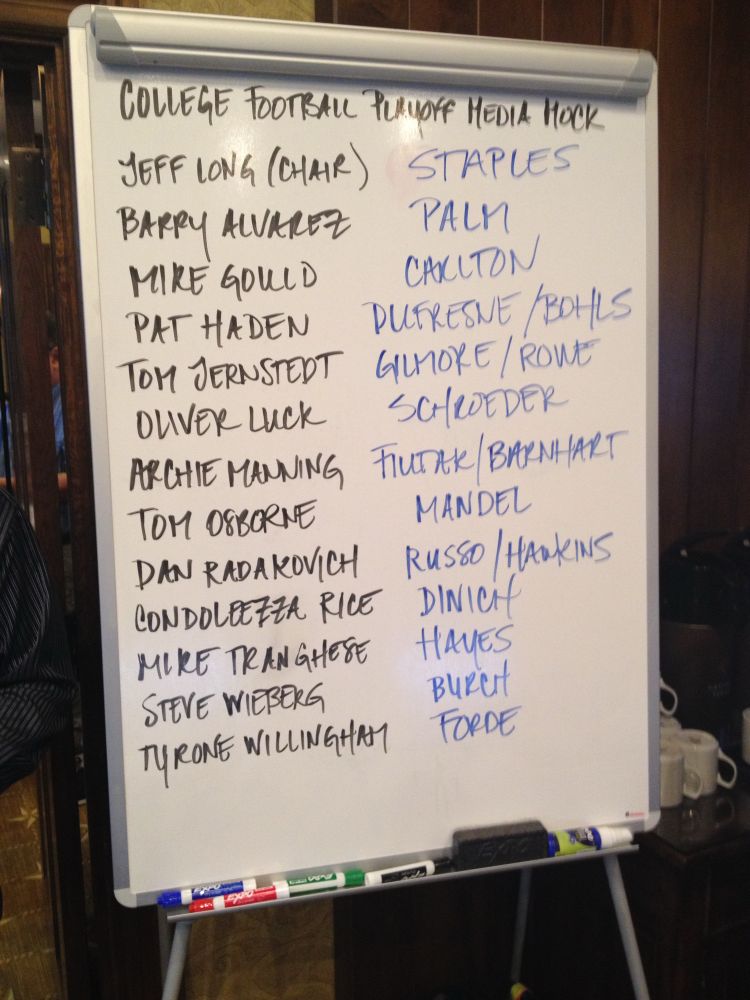 COLLEGE FOOTBALL PLAYOFF MEDIA MOCK
JEFF LONG (CHAIR) STAPLES
BARRY ALVAREZ PALM
MIKE GOULD CARLTON
PAT HADEN DUFRESNE/BOHLS
TOM JERNSTEDT GILMORE/ROWE
OLIVER LUCK SCHROEDER
ARCHIE MANNING FIUTAK/BARNHART
TOM OSBORNE MANDEL
DAN RADAKOVICH RUSSO/HAWKINS
CONDOLEEZZA RICE DINICH
MIKE TRANGHESE HAYES
STEVE WIEBERG BURCH
TYRONE WILLINGHAM FORDE
EXPO
EXPO
EXPO